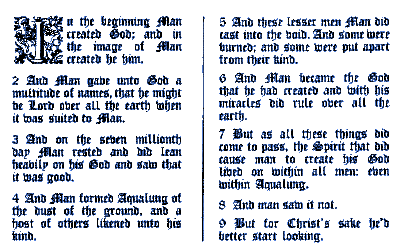 In the beginning Man
created God; and in
the image of Man
created he him.
2 And Man gave unto God a
multitude of names, that he might
be Lord over all the earth when
it was suited to Man.
3 And on the seven millionth
day Man rested and did lean
heavily on his God and saw that
it was good.
4 And Man formed Aqualung of
the dust of the ground, and a
host of others likened unto his
kind.
5 And these lesser men Man did
cast into the void. And some were
burned; and some were put apart
from their kind.
6 And Man became the God
that he had created and with his
miracles did rule over all the
earth.
7 But as all these things did
come to pass, the Spirit that did
cause man to create his God
lived on within all men: even
within Aqualung.
8 And man saw it not.
9 But for Christ's sake he'd
better start looking.